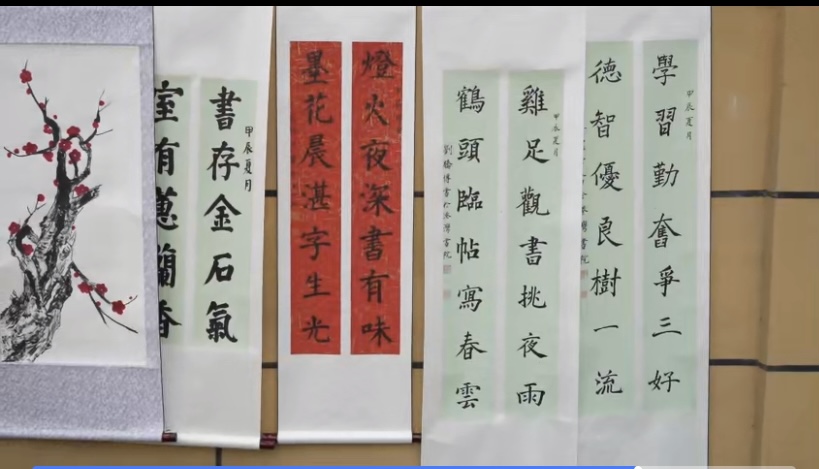 甲辰夏月
學習勤奮爭三好
德智優良樹一流
甲辰夏月
雞足觀書挑夜雨
鶴頭臨帖寫春雲
燈火夜深書有味
墨花晨湛字生光
甲辰夏月
書存金石氣
室有蕙蘭香